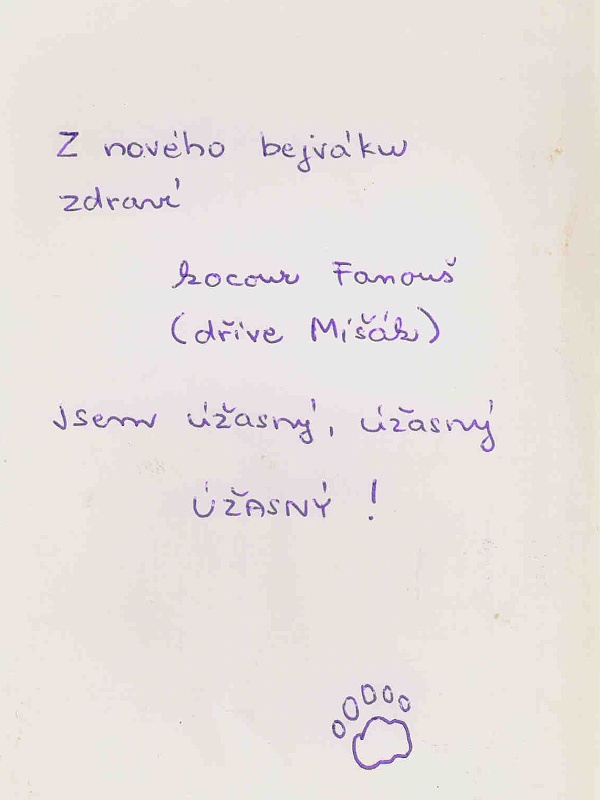 Z nového bejváku
zdraví
kocour Fanouš
(dříve Míšák)
jsem úžasný, úžasný
ÚŽASNÝ !